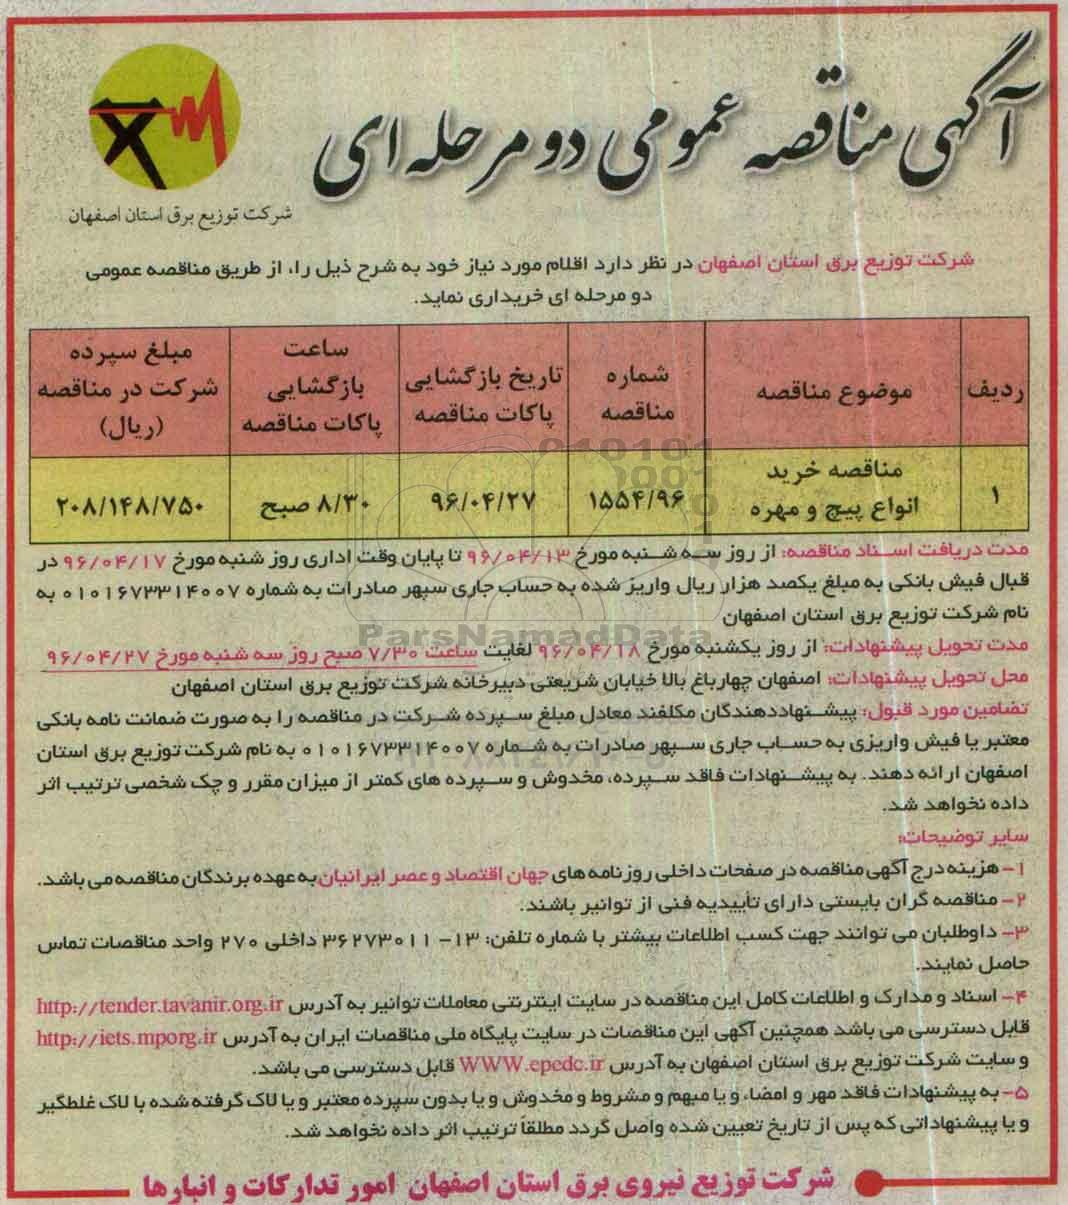 آگهی مناقصه عمومی دو مرحله ای
شرکت توزیع برق استان اصفهان
شرکت توزیع برق استان اصفهان در نظر دارد اقلام مورد نیاز خود به شرح ذیل را، از طریق مناقصه عمومی
دو مرحله ای خریداری نماید.
ردیف | موضوع مناقصه | شماره مناقصه | تاریخ بازگشایی پاکات مناقصه | ساعت بازگشایی پاکات مناقصه | مبلغ سپرده شرکت در مناقصه (ریال)
۱ | مناقصه خرید انواع پیچ و مهره | ۱۵۵۴/۹۶ | ۹۶/۰۴/۲۷ | ۸/۳۰ صبح | ۲۰۸/۱۴۸/۷۵۰
مدت دریافت اسناد مناقصه: از روز سه شنبه مورخ ۹۶/۰۴/۱۳ تا پایان وقت اداری روز شنبه مورخ ۹۶/۰۴/۱۷ در
قبال فیش بانکی به مبلغ یکصد هزار ریال واریز شده به حساب جاری سپهر صادرات به شماره ۰۱۰۱۶۷۳۳۱۴۰۰۷ به
نام شرکت توزیع برق استان اصفهان
ParsNamadData
مدت تحویل پیشنهادات: از روز یکشنبه مورخ ۹۶/۰۴/۱۸ لغایت ساعت ۷/۳۰ صبح روز سه شنبه مورخ ۹۶/۰۴/۲۷
محل تحویل پیشنهادات: اصفهان چهارباغ بالا خیابان شریعتی دبیرخانه شرکت توزیع برق استان اصفهان
تضامین مورد قبول: پیشنهاددهندگان مکلفند معادل مبلغ سپرده شرکت در مناقصه را به صورت ضمانت نامه بانکی
معتبر یا فیش واریزی به حساب جاری سپهر صادرات به شماره ۰۱۰۱۶۷۳۳۱۴۰۰۷ به نام شرکت توزیع برق استان
اصفهان ارائه دهند. به پیشنهادات فاقد سپرده، مخدوش و سپرده های کمتر از میزان مقرر و چک شخصی ترتیب اثر
داده نخواهد شد.
سایر توضیحات:
۱- هزینه درج آگهی مناقصه در صفحات داخلی روزنامه های جهان اقتصاد و عصر ایرانیان به عهده برندگان مناقصه می باشد.
۲- مناقصه گران بایستی دارای تأییدیه فنی از توانیر باشند.
۳- داوطلبان می توانند جهت کسب اطلاعات بیشتر با شماره تلفن: ۱۳- ۳۶۲۷۳۰۱۱ داخلی ۲۷۰ واحد مناقصات تماس
حاصل نمایند.
۴- اسناد و مدارک و اطلاعات کامل این مناقصه در سایت اینترنتی معاملات توانیر به آدرس http://tender.tavanir.org.ir
قابل دسترسی می باشد همچنین آگهی این مناقصات در سایت پایگاه ملی مناقصات ایران به آدرس http://iets.mporg.ir
و سایت شرکت توزیع برق استان اصفهان به آدرس WWW.epedc.ir قابل دسترسی می باشد.
۵- به پیشنهادات فاقد مهر و امضاء و یا مبهم و مشروط و مخدوش و یا بدون سپرده معتبر و یا لاک گرفته شده با لاک غلطگیر
و یا پیشنهاداتی که پس از تاریخ تعیین شده واصل گردد مطلقاً ترتیب اثر داده نخواهد شد.
شرکت توزیع نیروی برق استان اصفهان امور تدارکات و انبارها